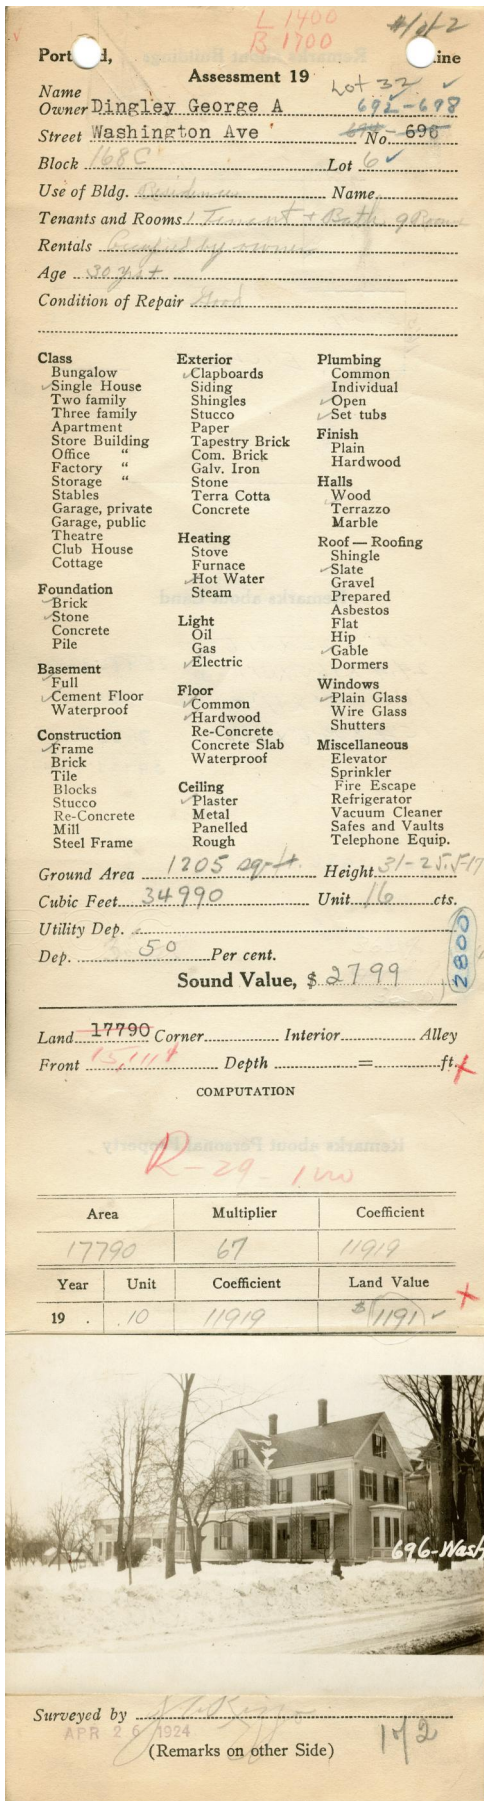 L 1400
B 1700
#1 of 2
Port d, ine
Assessment 19
Lot 32
Name
Owner Dingley George A 692-698
Street Washington Ave No. 696
Block 168C Lot 6
Use of Bldg. Residence Name
Tenants and Rooms 1 Tenant + Bath 9 Rooms
Rentals Occupied by owner
Age 30 yrs +
Condition of Repair Good
Class
Bungalow
Single House
Two family
Three family
Apartment
Store Building
Office "
Factory "
Storage "
Stables
Garage, private
Garage, public
Theatre
Club House
Cottage
Foundation
Brick
Stone
Concrete
Pile
Basement
Full
Cement Floor
Waterproof
Construction
Frame
Brick
Tile
Blocks
Stucco
Re-Concrete
Mill
Steel Frame
Exterior
Clapboards
Siding
Shingles
Stucco
Paper
Tapestry Brick
Com. Brick
Galv. Iron
Stone
Terra Cotta
Concrete
Heating
Stove
Furnace
Hot Water
Steam
Light
Oil
Gas
Electric
Floor
Common
Hardwood
Re-Concrete
Concrete Slab
Waterproof
Ceiling
Plaster
Metal
Panelled
Rough
Plumbing
Common
Individual
Open
Set tubs
Finish
Plain
Hardwood
Halls
Wood
Terrazzo
Marble
Roof — Roofing
Shingle
Slate
Gravel
Prepared
Asbestos
Flat
Hip
Gable
Dormers
Windows
Plain Glass
Wire Glass
Shutters
Miscellaneous
Elevator
Sprinkler
Fire Escape
Refrigerator
Vacuum Cleaner
Safes and Vaults
Telephone Equip.
Ground Area 1205 sq ft. Height 31-25.5-17
Cubic Feet 34990 Unit 16 cts.
Utility Dep.
Dep. 50 Per cent.
Sound Value, $ 2799
2800
Land 17790 Corner Interior Alley
Front 15,111 Depth = ft.
COMPUTATION
R-29-
Area Multiplier Coefficient
17790 67 11919
Year Unit Coefficient Land Value
19 . .10 11919 $ 1191
696-Wash
Surveyed by
APR 26 1924
1 of 2
(Remarks on other Side)